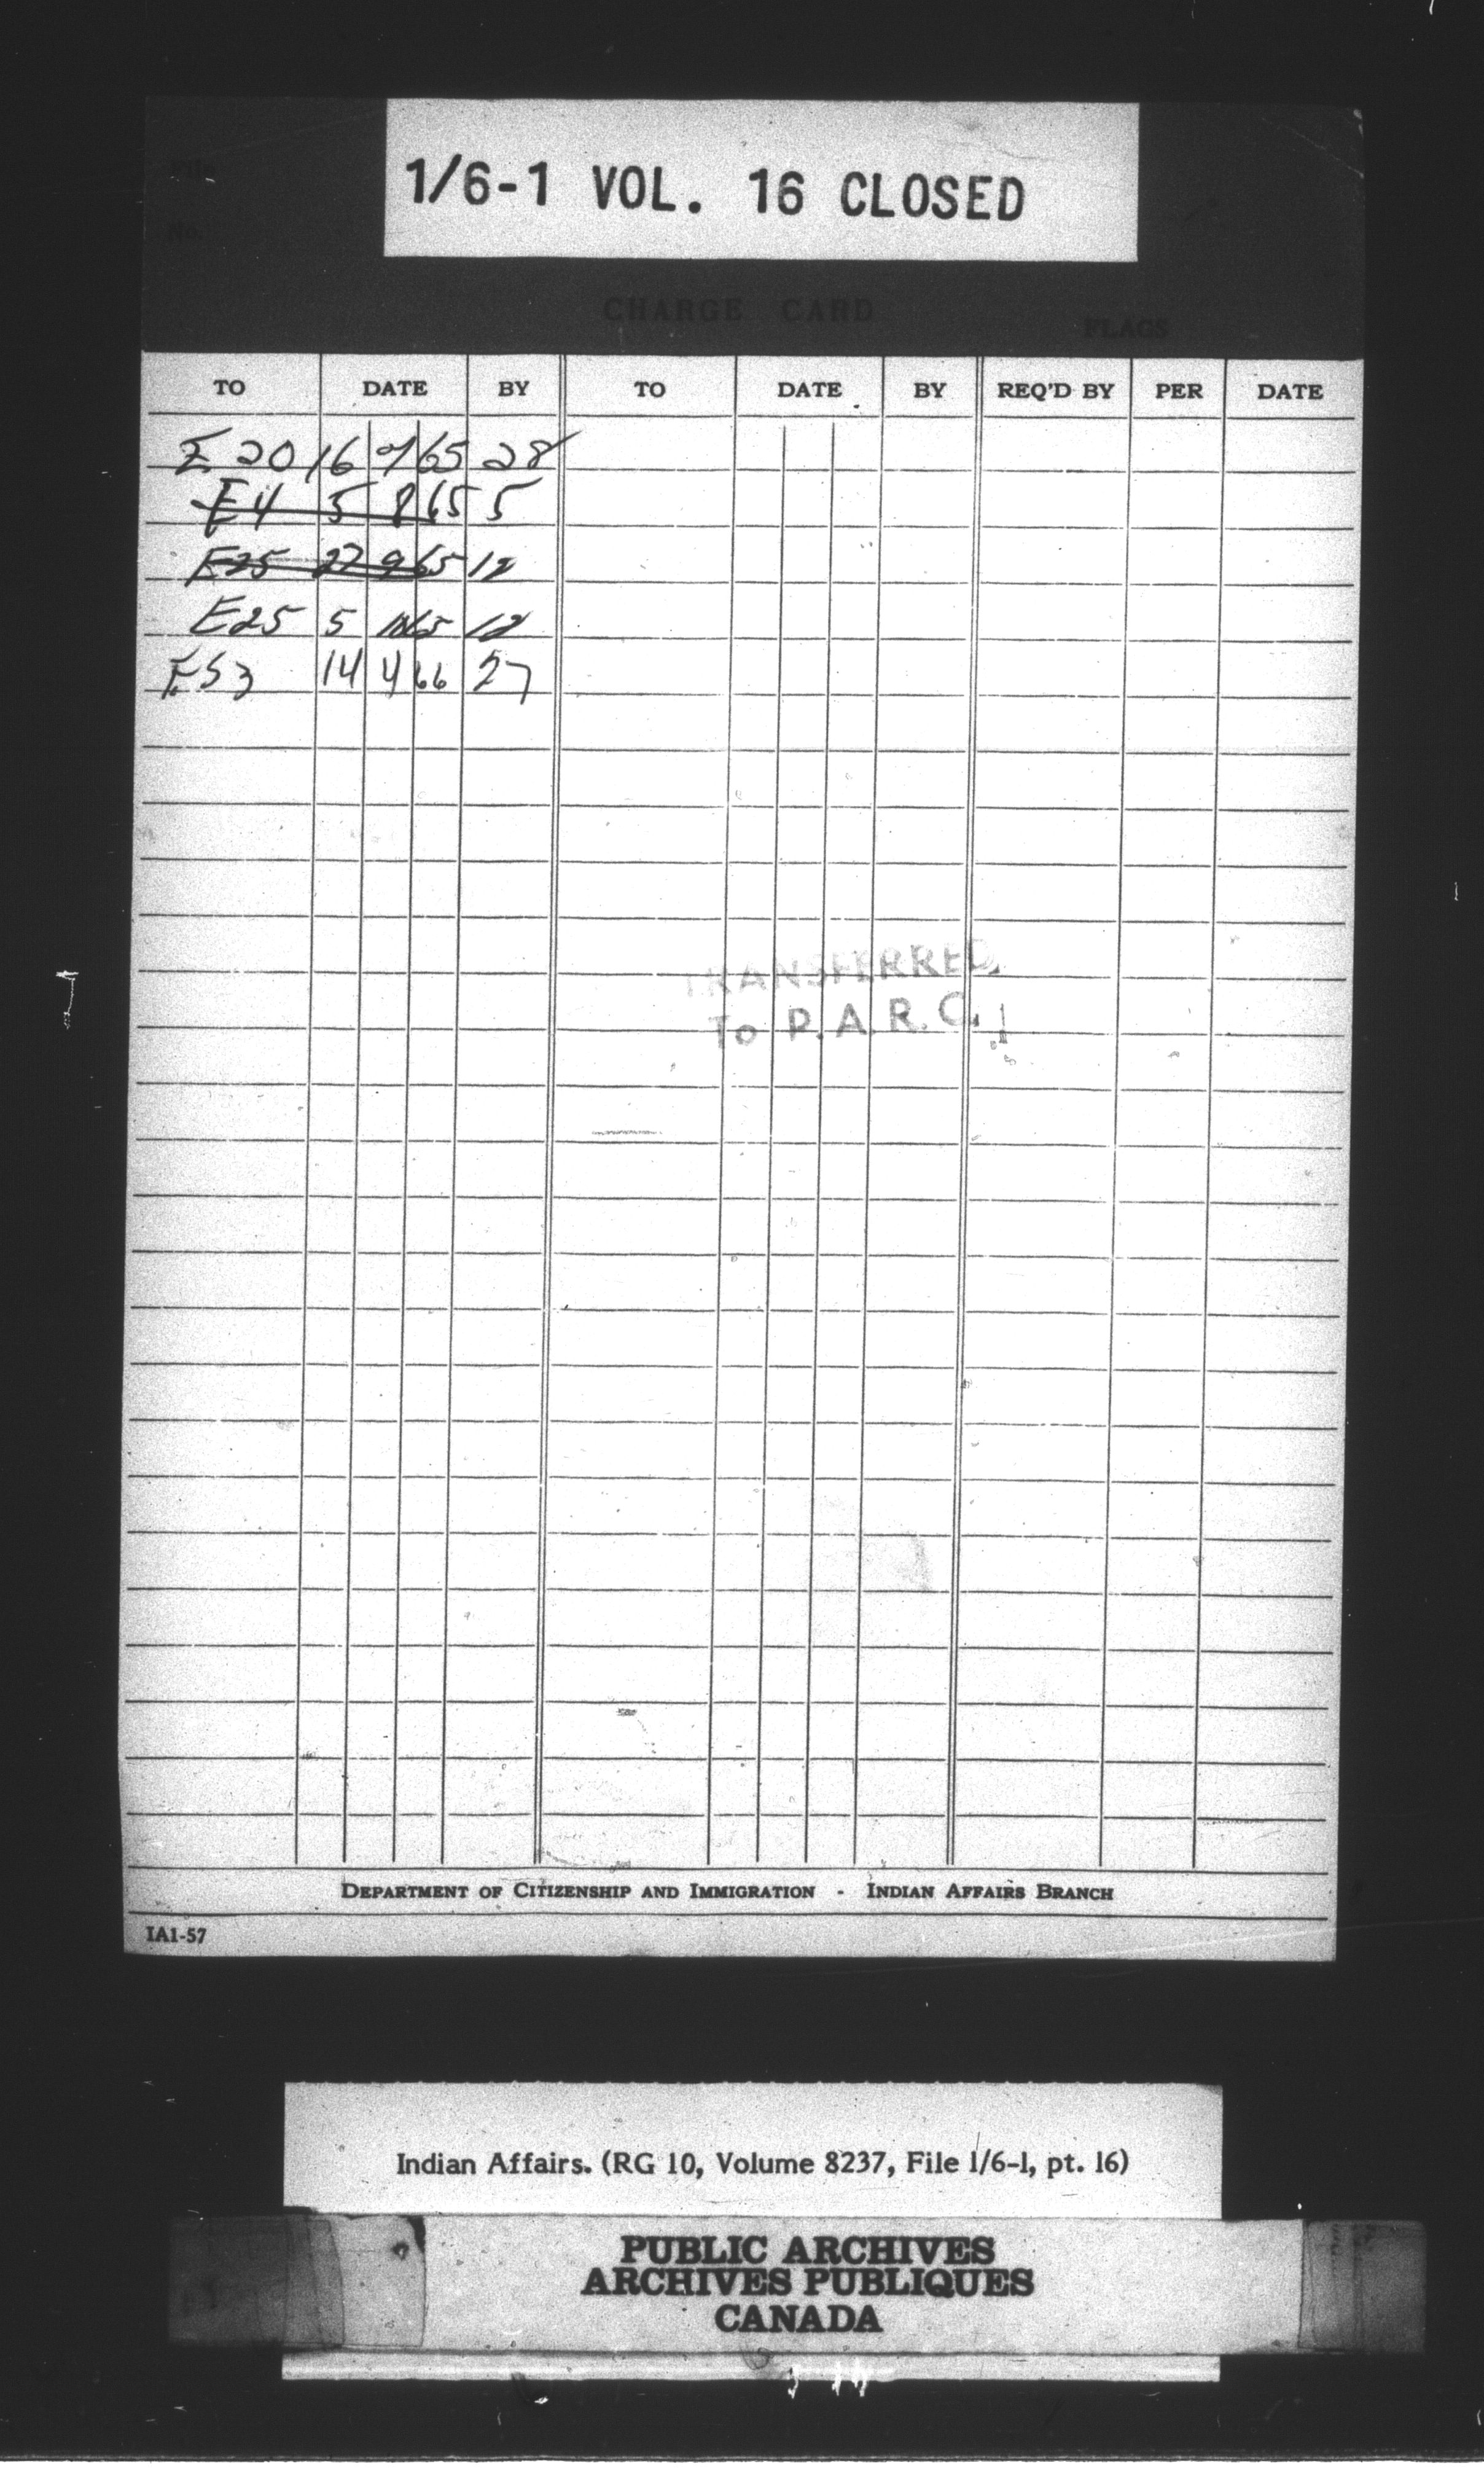 1/6-1 VOL. 16 CLOSED
File
No.
CHARGE CARD
FLAGS
TO DATE BY TO DATE BY REQ'D BY PER DATE
E 20 16 7 65 28
E4 5 8 65 5
E25 27 9 65 12
E25 5 10 65 12
E53 14 4 66 27
TRANSFERRED
To P.A.R.C.
DEPARTMENT OF CITIZENSHIP AND IMMIGRATION - INDIAN AFFAIRS BRANCH
IA1-57
Indian Affairs. (RG 10, Volume 8237, File 1/6-1, pt. 16)
PUBLIC ARCHIVES
ARCHIVES PUBLIQUES
CANADA